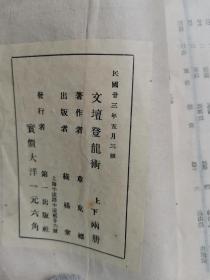 民國廿三年五月三版
文壇登龍術 上下兩册
著作者 章克標
出版者 綠楊堂
發行者 第一出版社
實價大洋一元六角